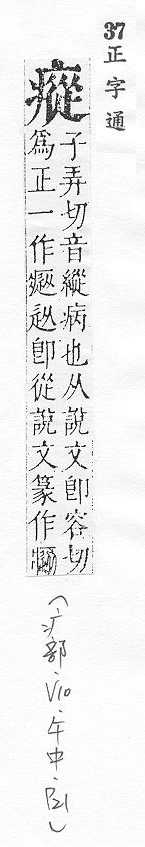 37
正字通
瘲
子弄切音縱病也从說文卽容切
爲正一作卽從說文篆作
(疒部.V10.午中.P21)